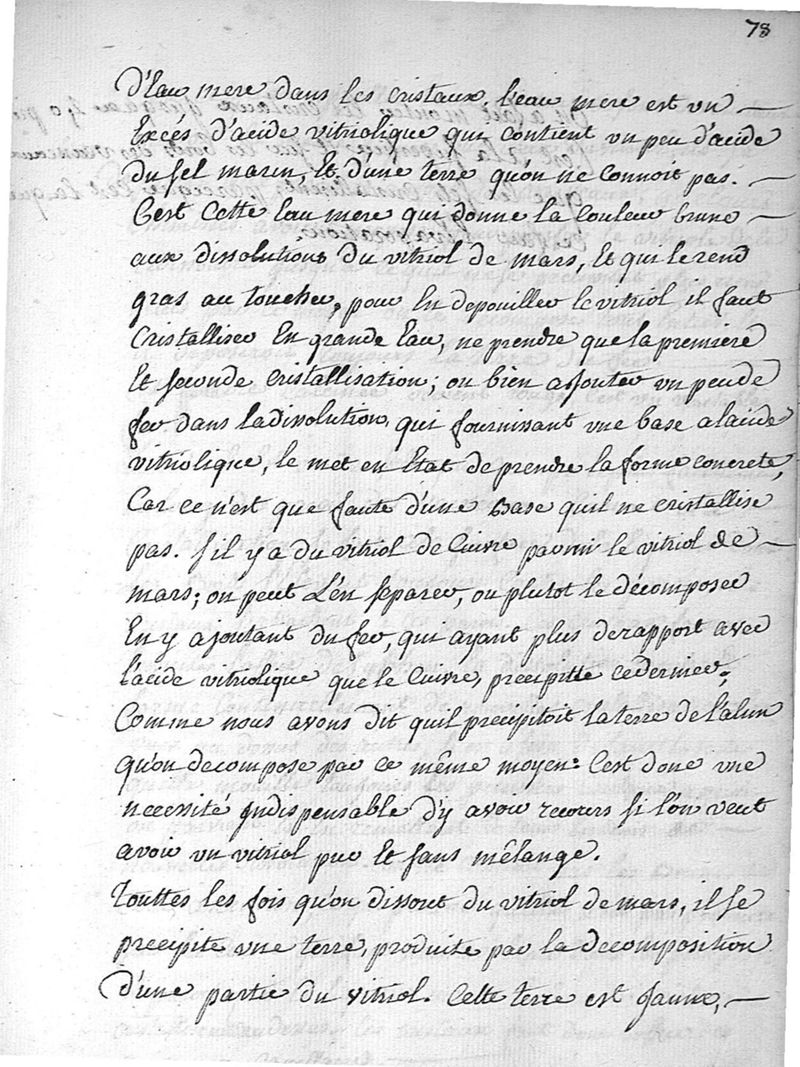 78
D'Eau mere dans les cristaux. l'eau mere est un —
Excés d'acide vitriolique qui contient un peu d'acide
du sel marin, Et d'une terre qu'on ne connoit pas. —
C'est Cette Eau mere qui donne la Couleur brune —
aux dissolutions du vitriol de mars, Et qui le rend
gras au toucher, pour En depouiller le vitriol il faut
Cristalliser En grande Eau, ne prendre que la premiere
Et seconde cristallisation; ou bien ajouter un peu de
fer dans la dissolution, qui fournissant une base a l'acide
vitriolique, le met en Etat de prendre la forme concrete,
Car ce n'est que faute d'une Base quil ne cristallise
pas. S'il y a du vitriol de Cuivre parmi le vitriol de —
mars; on peut L'én separer, ou plutot le décomposer
En y ajoutant du fer, qui ayant plus de rapport avec
l'acide vitriolique que le Cuivre, precipitte ce dernier;
Comme nous avons dit quil precipitoit la terre de l'alun
qu'on decompose par ce même moyen: C'est donc une
necessité indispensable d'y avoir recours si l'on veut
avoir un vitriol pur Et sans mêlange.
Touttes les fois qu'on dissout du vitriol de mars, il se
precipite une terre, produite par la decomposition
D'une partie du vitriol. Cette terre est Jaune, —